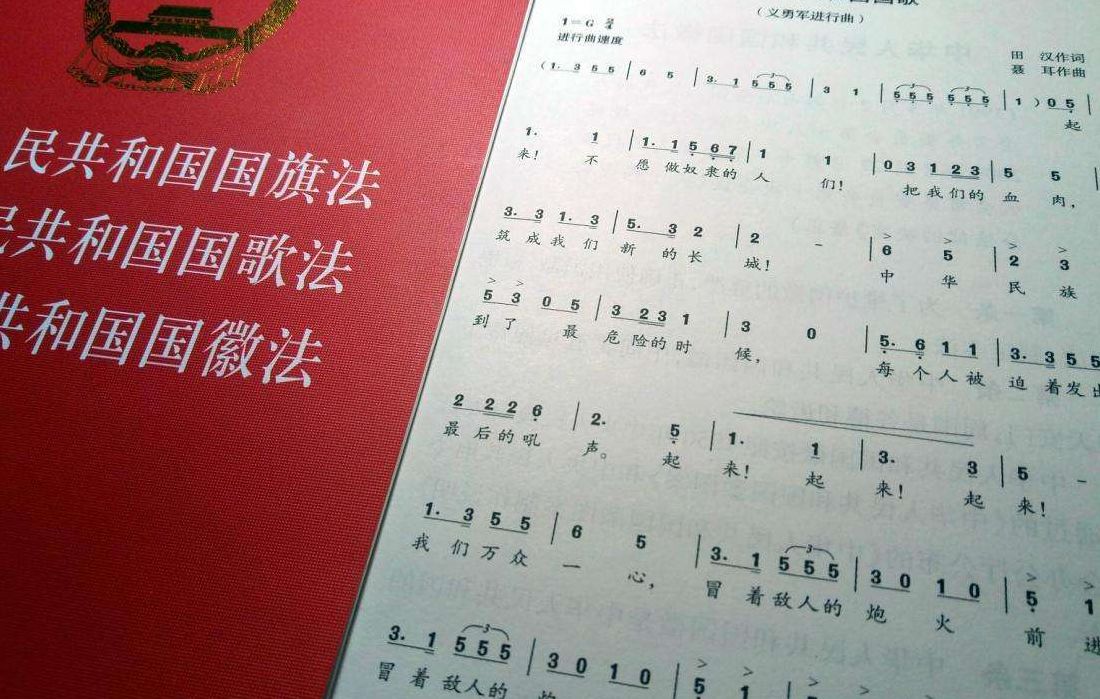 民共和国国旗法
民共和国国歌法
共和国国徽法
国歌
（义勇军进行曲）
1=G 2/4
进行曲速度
田 汉作词
聂 耳作曲
(1. 3 5 5 | 6 5 | 3. 1 5 5 5 | 3 1 | 5 5 5 5 5 5 | 1 ) 0 5 |
起
1. 1 | 1. 1 5 6 7 | 1 1 | 0 3 1 2 3 | 5 5 |
来！ 不 愿 做奴 隶的 人 们！ 把我们的 血 肉，
3. 3 1. 3 | 5. 3 2 | 2 - | 6 5 | 2 3
筑 成我 们 新 的长 城！ 中 华 民 族
5 3 0 5 | 3 2 3 1 | 3 0 | 5. 6 1 1 | 3. 3 5 5
到了 最 危 险的时 候， 每 个人被 迫 着发出
2 2 2 6 | 2. 5 | 1. 1 | 3. 3 | 5 -
最 后的吼 声。 起 来！ 起 来！ 起 来！
1. 3 5 5 | 6 5 | 3. 1 5 5 5 | 3 0 1 0 | 5 1
我 们万众 一 心， 冒 着敌人的 炮 火 前 进
3. 1 5 5 5 | 3 0 1 0 | 5 1
冒 着敌人的